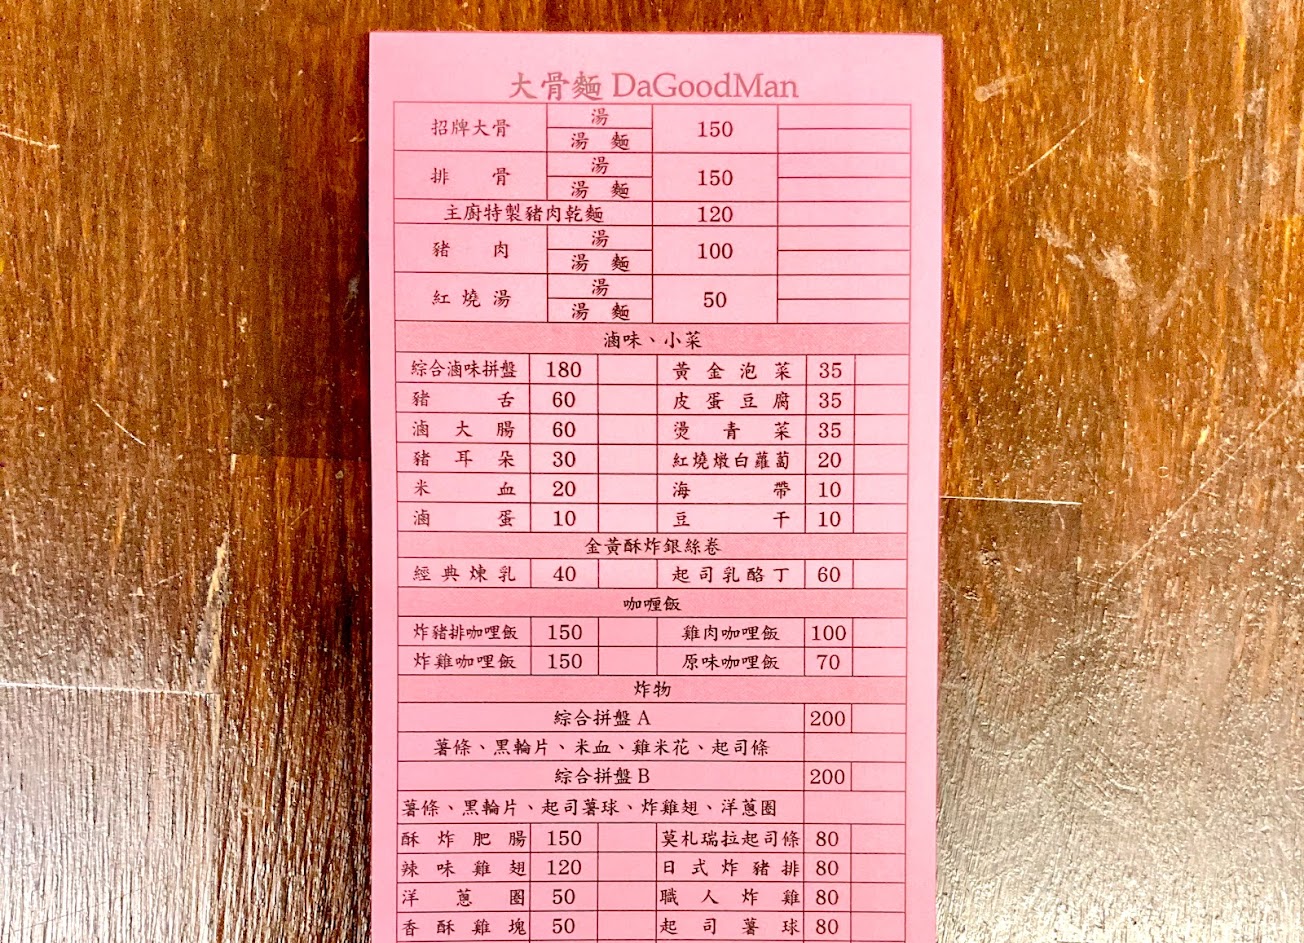 大骨麵 DaGoodMan
招牌大骨 湯 150
湯麵
排骨 湯 150
湯麵
主廚特製豬肉乾麵 120
豬肉 湯 100
湯麵
紅燒湯 湯 50
湯麵
滷味、小菜
綜合滷味拼盤 180 黃金泡菜 35
豬舌 60 皮蛋豆腐 35
滷大腸 60 燙青菜 35
豬耳朵 30 紅燒燉白蘿蔔 20
米血 20 海帶 10
滷蛋 10 豆干 10
金黃酥炸銀絲卷
經典煉乳 40 起司乳酪丁 60
咖喱飯
炸豬排咖哩飯 150 雞肉咖哩飯 100
炸雞咖哩飯 150 原味咖哩飯 70
炸物
綜合拼盤 A 200
薯條、黑輪片、米血、雞米花、起司條
綜合拼盤 B 200
薯條、黑輪片、起司薯球、炸雞翅、洋蔥圈
酥炸肥腸 150 莫札瑞拉起司條 80
辣味雞翅 120 日式炸豬排 80
洋蔥圈 50 職人炸雞 80
香酥雞塊 50 起司薯球 80